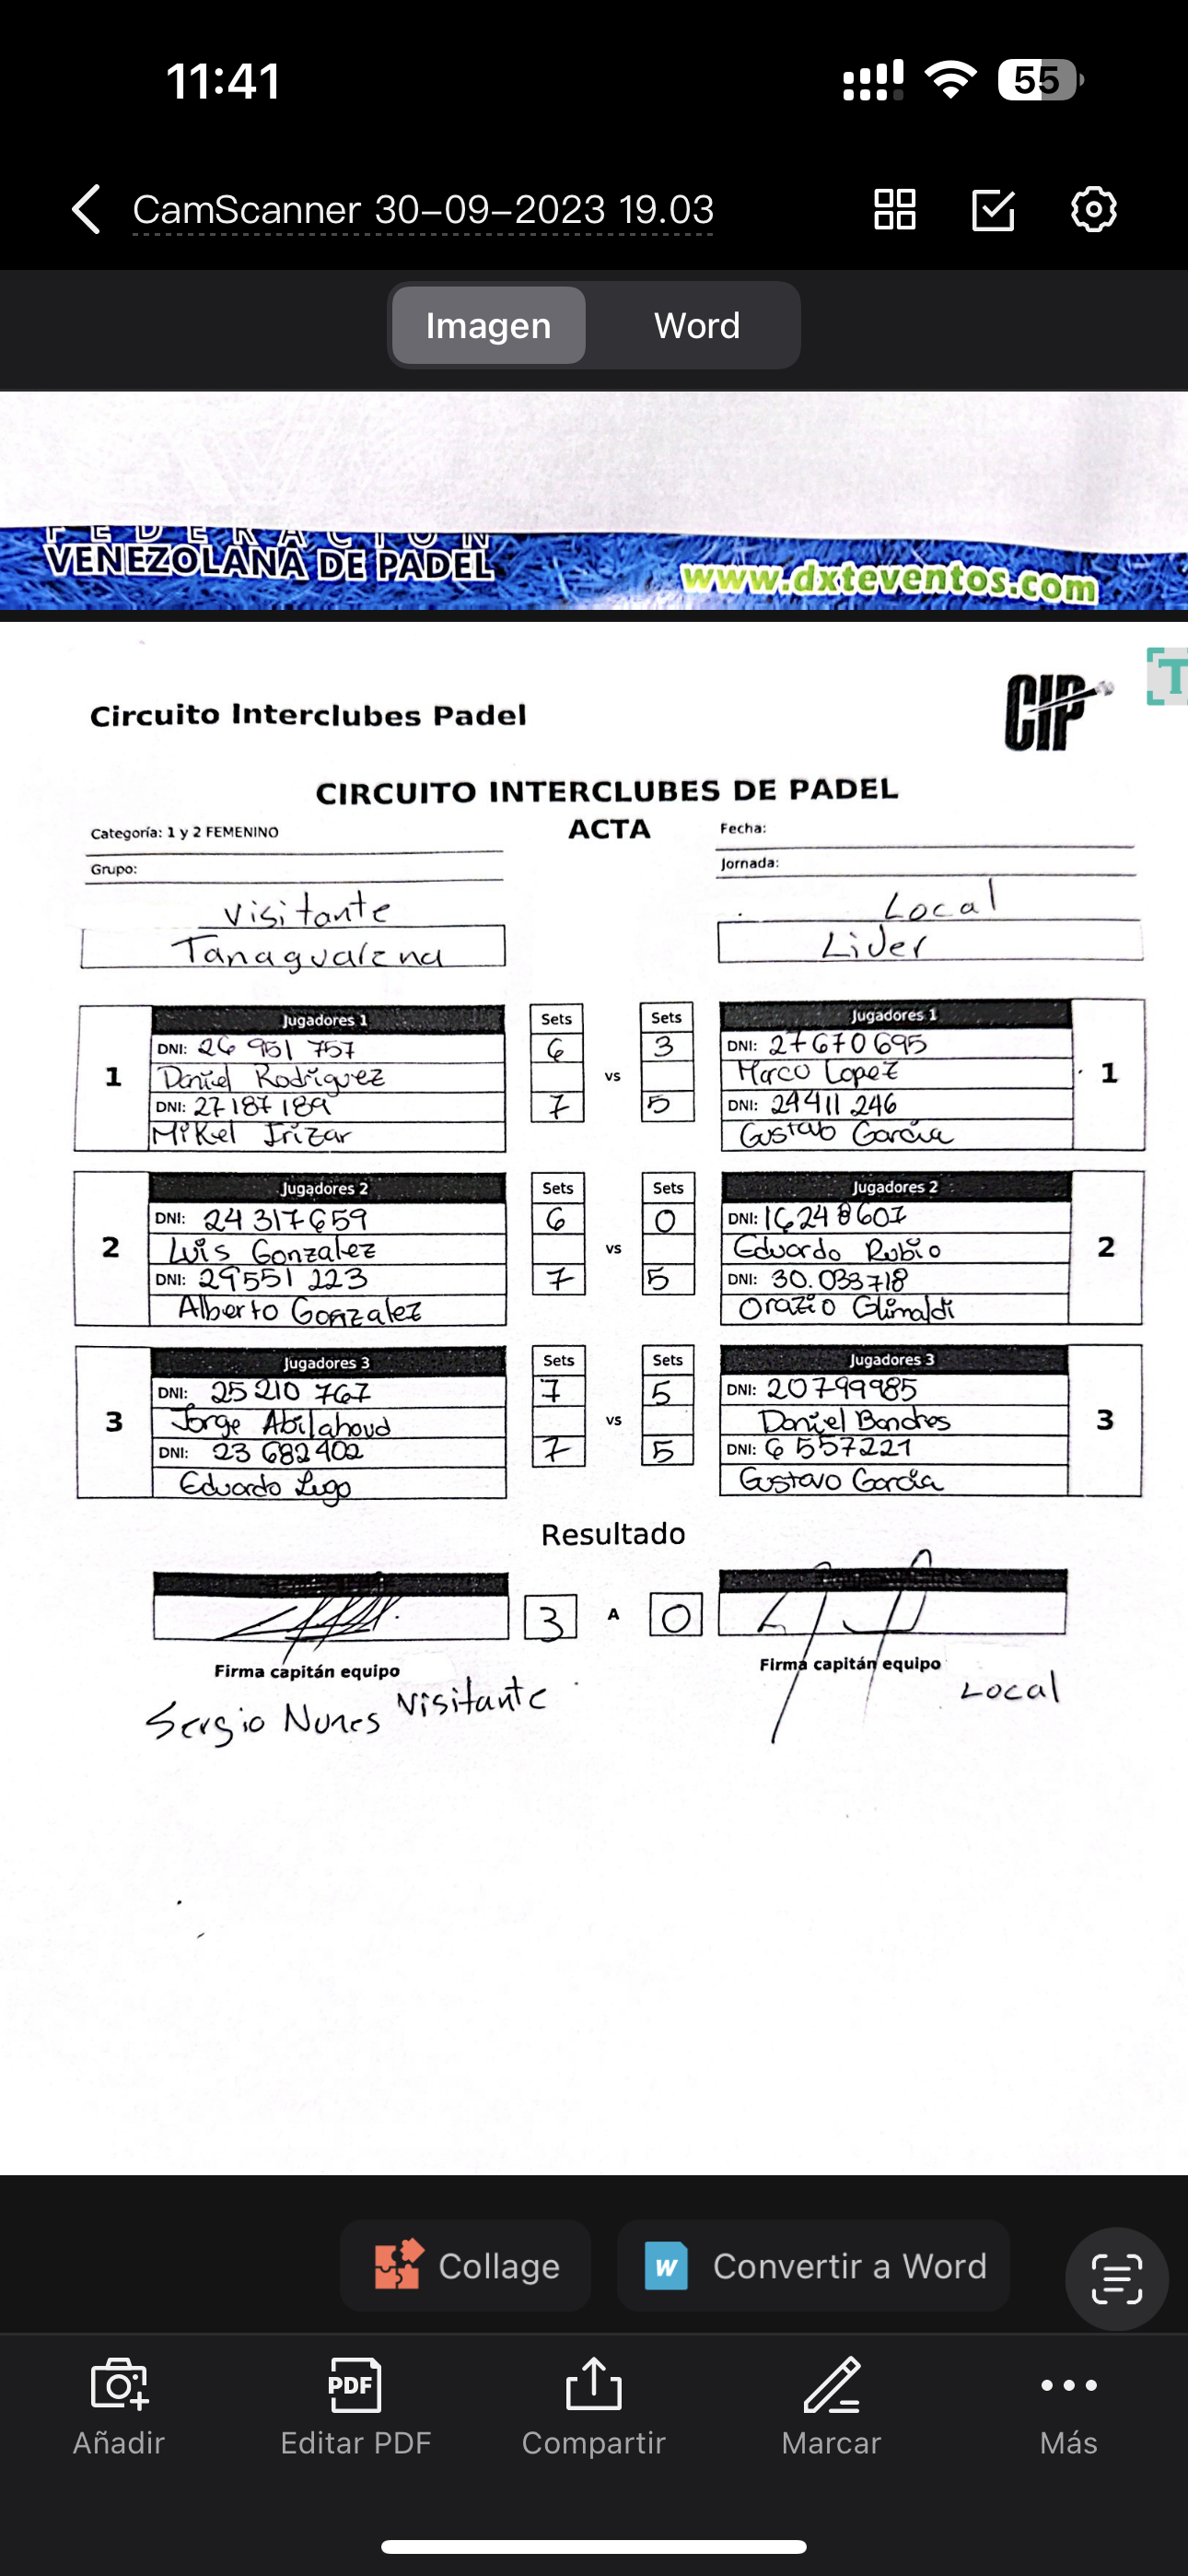 11:41
55
CamScanner 30-09-2023 19.03
Imagen Word
FEDERACION
VENEZOLANA DE PADEL
www.dxteventos.com
T
Circuito Interclubes Padel
CIP
CIRCUITO INTERCLUBES DE PADEL
ACTA
Categoría: 1 y 2 FEMENINO
Fecha:
Grupo:
Jornada:
Visitante
Local
Tanagualena
Lider
Jugadores 1 Sets Sets Jugadores 1
DNI: 26 951 757 6 3 DNI: 27670695
1 Daniel Rodriguez vs Marco Lopez 1
DNI: 27187189 7 5 DNI: 29411246
Mikel Irizar Gustavo Garcia
Jugadores 2 Sets Sets Jugadores 2
DNI: 24317659 6 0 DNI: 16248607
2 Luis Gonzalez vs Eduardo Rubio 2
DNI: 29551223 7 5 DNI: 30.033718
Alberto Gonzalez Orazio Glimaldi
Jugadores 3 Sets Sets Jugadores 3
DNI: 25210 767 7 5 DNI: 20799985
3 Jorge Abilahoud vs Daniel Bandres 3
DNI: 23 682402 7 5 DNI: 6557221
Eduardo Lugo Gustavo Garcia
Resultado
3 A 0
Firma capitán equipo Firma capitán equipo
Sergio Nunes Visitante Local
Collage
W Convertir a Word
PDF
Añadir Editar PDF Compartir Marcar Más